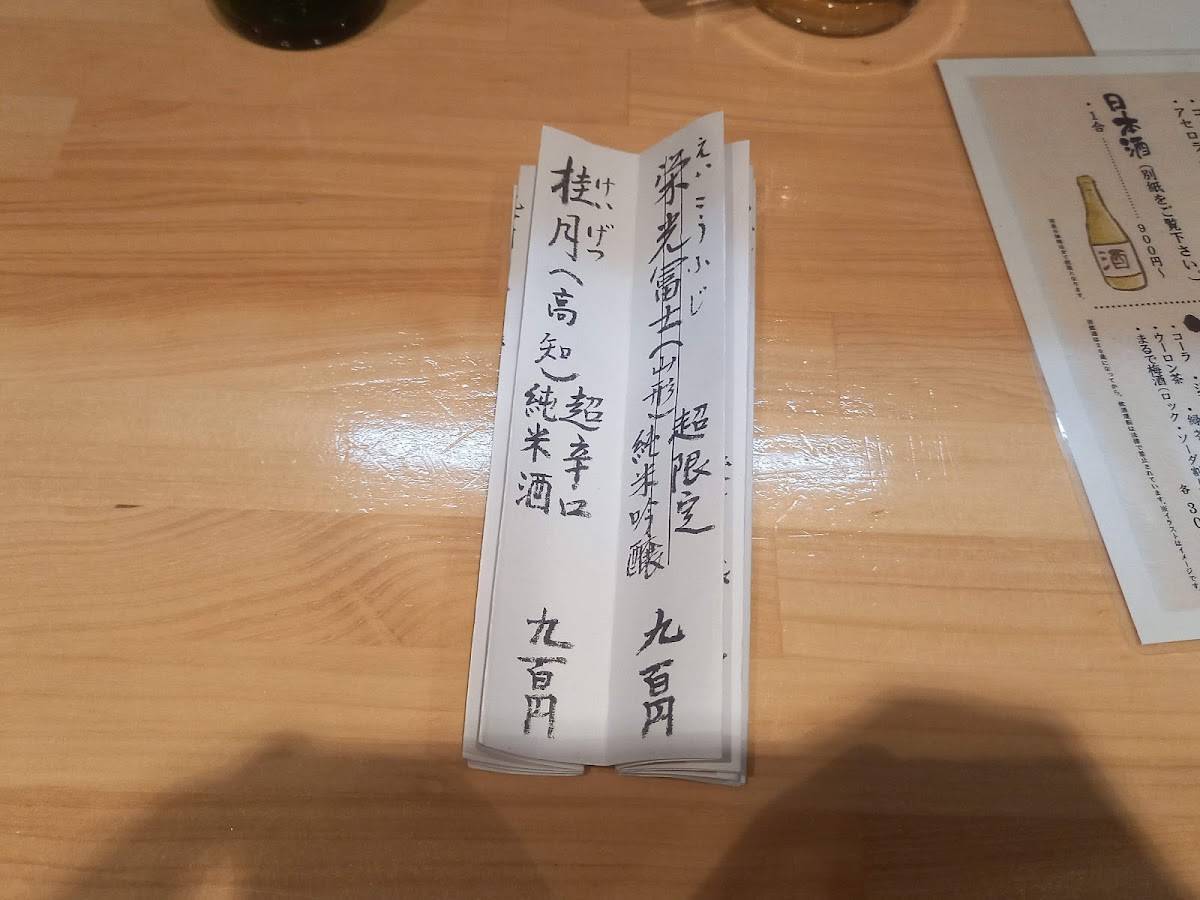 えいこうふじ
栄光富士(山形)純米吟醸
超限定
九百円
けいげつ
桂月(高知)
超辛口
純米酒
九百円
日本酒(別紙をご覧下さい。)
・1合 900円〜
酒
・コーラ
・ウーロン茶
・まるで梅酒(ロック・ソーダ
・緑茶
各